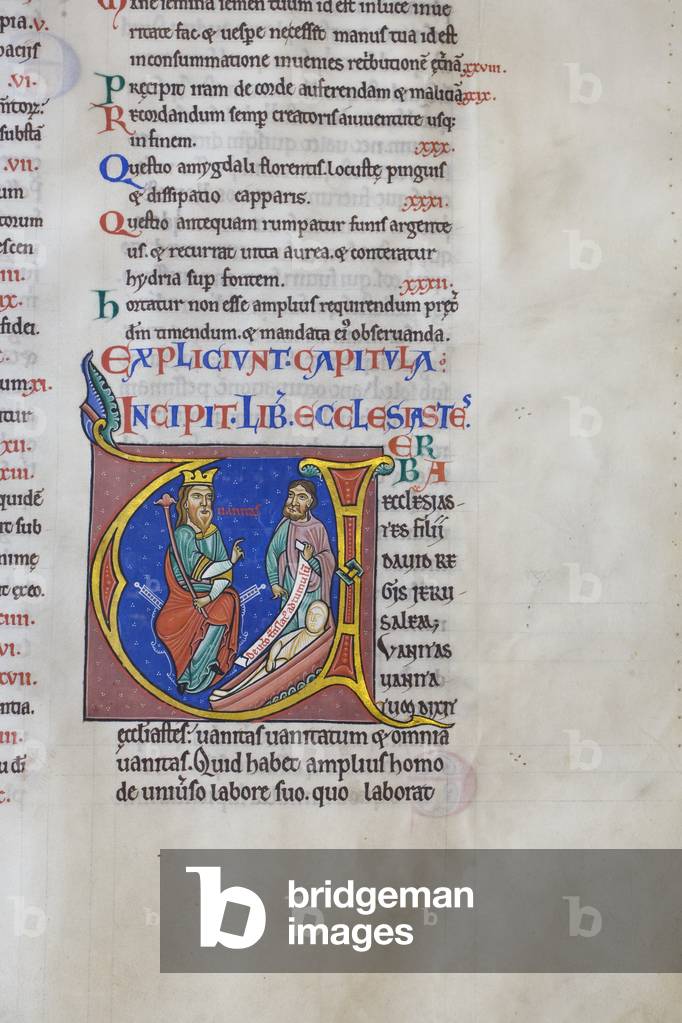 pia. v.
pacis
.VI.
substā
.VII.
um
torum
escen
III.
IX.
fidei.
um XI.
tur
XII.
XIII.
quidē
ut sub
nimę
XIIII.
VI.
XVII.
ntia.
Mane semina semen tuum id est in luce inue
ritate fac & uespe necessio manus tua id est
in consummatione inuenies ret̄butionē ęt̄nā xxviii.
Pręcipit iram de corde auferendam & maliciā xxix.
Recordandum semp creatoris a iuuentute usq:
in finem. xxx.
Questio amygdali florentis. locustę pinguis
& dissipatio capparis. xxxi.
Questio antequam rumpatur funis argente
us. & recurrat uitta aurea. & conteratur
hydria sup fontem. xxxii.
hortatur non esse amplius requirendum pręt̄
dm̄ timendum. & mandata ei᾿ obseruanda.
EXPLICIVNT. CAPITVLA
INCIPIT. LIB̄. ECCLESIASTEˢ.
VER
BA
uanitas
ECCLESIAS-
TES FILII
DAVID RE
GIS IERU
SALEM,
VANITAS
UANITA
TUM DIXIT
ęccl̄iastes: uanitas uanitatum & omnia
uanitas. Quid habet amplius homo
de uniu̾so labore suo. quo laborat
b bridgeman
images